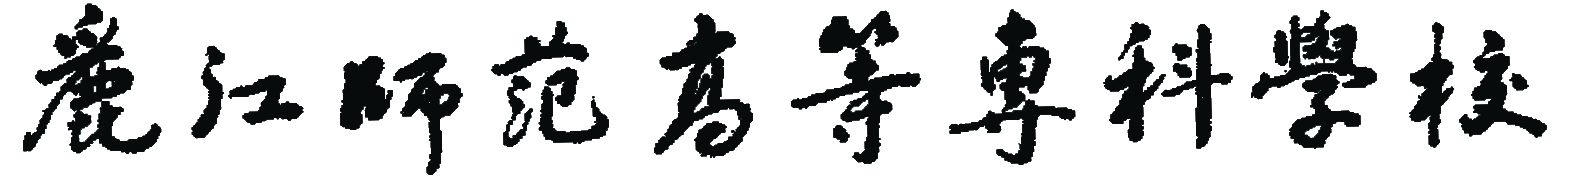 麗江师范高等專科學校